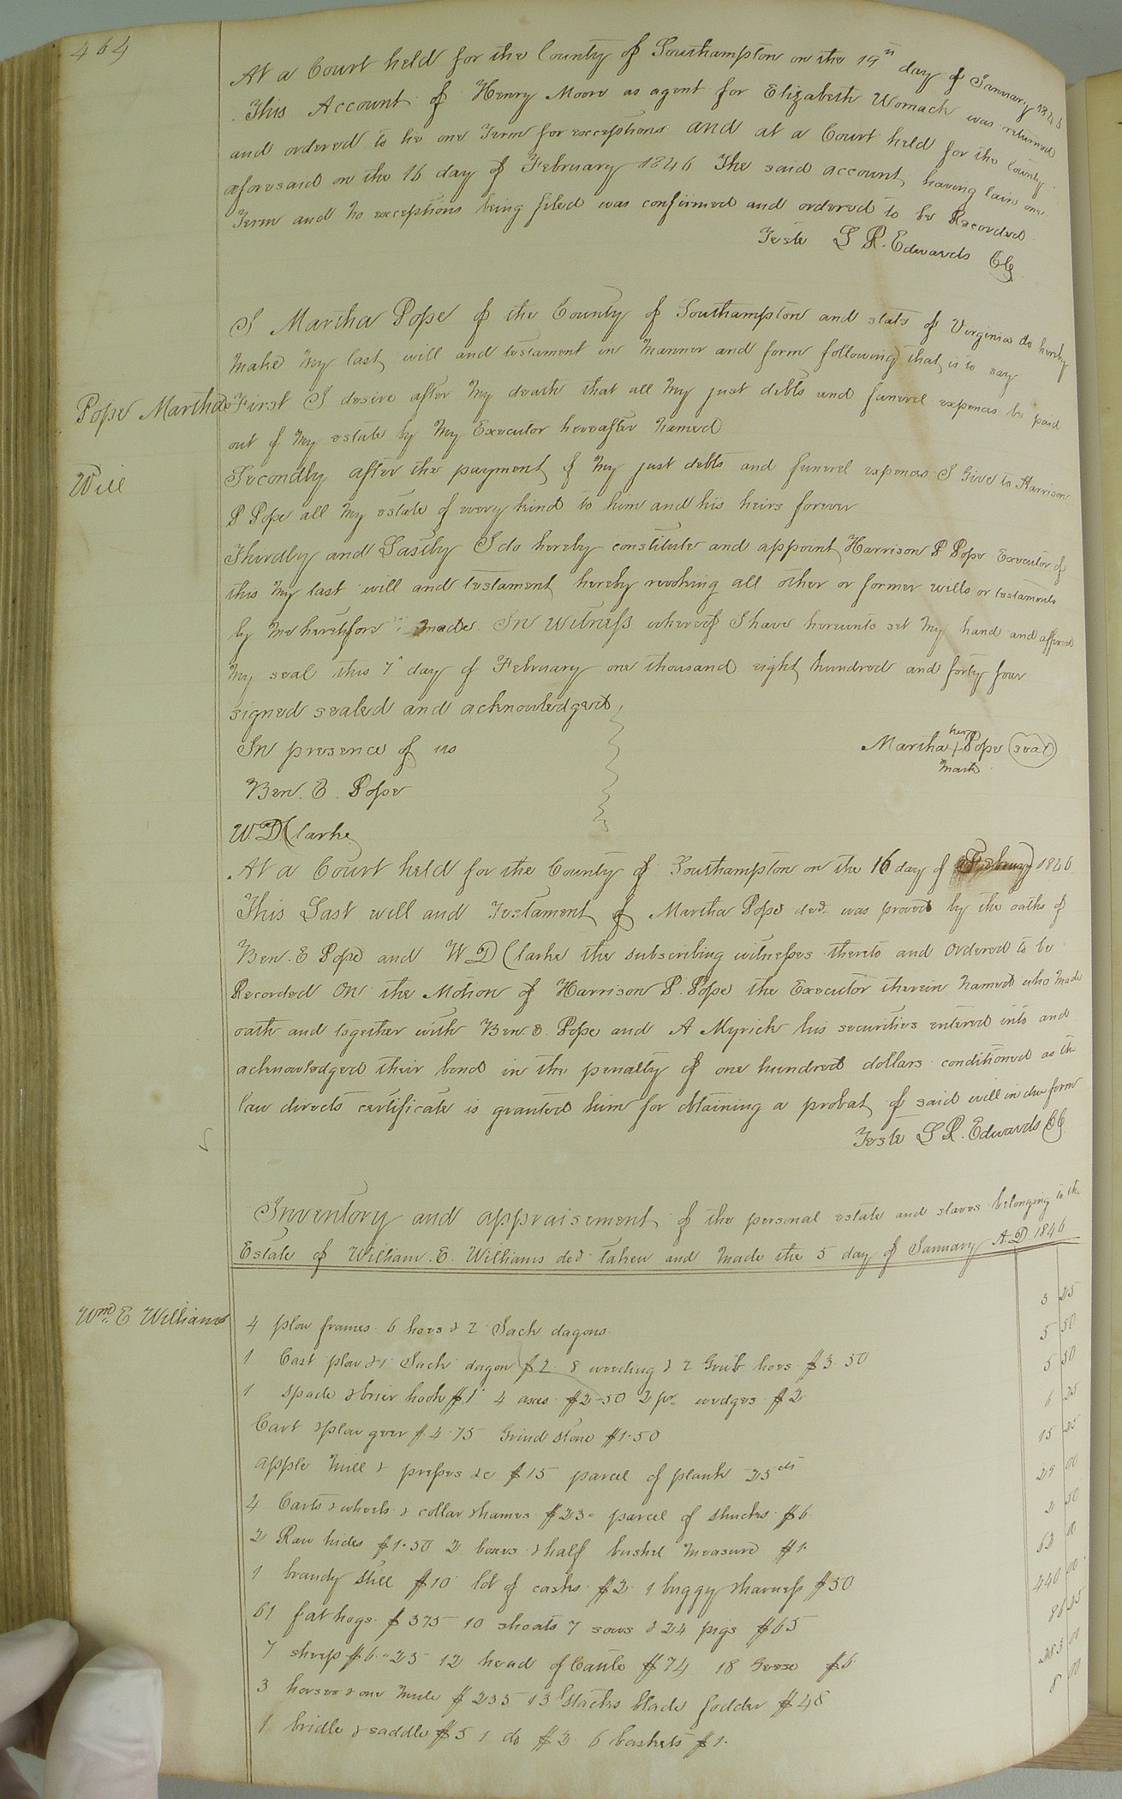 464
At a Court held for the County of Southampton on the 19th day of January 1846
This Account of Henry Moore as agent for Elizabeth Womack was returned
and ordered to lie one Term for exceptions and at a Court held for the County
aforesaid on the 16 day of February 1846 The said account having lain one
Term and no exceptions being filed was confirmed and ordered to be Recorded
Teste L R. Edwards Clk
I Martha Pope of the County of Southampton and state of Virginia do hereby
make my last will and testament in manner and form following that is to say
Pope Martha
First I desire after my death that all my just debts and funeral expences be paid
out of my estate by my Executor hereafter named
Will
Secondly after the payment of my just debts and funeral expences I Give to Harrison
P Pope all my estate of every kind to him and his heirs forever
Thirdly and Lastly I do hereby constitute and appoint Harrison P Pope Executor of
this my last will and testament hereby revoking all other or former wills or testaments
by me heretofore made In Witness whereof I have hereunto set my hand and affixed
my seal this 7th day of February one thousand eight hundred and forty four
signed sealed and acknowledged
In presence of us
her
Martha + Pope (seal)
mark
Ben. E. Pope
W. D Clarke
At a Court held for the County of Southampton on the 16 day of February 1846
This Last will and Testament of Martha Pope decd. was proved by the oaths of
Ben. E Pope and W D Clarke the subscribing witnesses thereto and ordered to be
Recorded On the Motion of Harrison P. Pope the Executor therein named who made
oath and together with Ben. E. Pope and A Myrick his securities entered into and
acknowledged their bond in the penalty of one hundred dollars conditioned as the
law directs certificate is granted him for obtaining a probat of said will in due form
Teste L R. Edwards Clk
Inventory and appraisement of the personal estate and slaves belonging to the
Estate of William. E. Williams decd taken and made the 5 day of January A D 1846
Wm. E Williams
4 plow frames. 6 hoes & 2 Sach dagons 3 25
1 Cast plow & 1 Sach dagon $2 8 weeding & 2 Grub hoes $3.50 5 50
1 spade & brier hook $1 4 axes $2-50 2 pr wedges $2 5 50
Cart & plow gear $4.75 Grind stone $1.50 6 25
apple mill & presses &c $15 parcel of plank 25 cts 15 25
4 Carts & wheels & collar & hames $23- parcel of shucks $6 29 00
2 Raw hides $1.50 2 boxes & half bushel measure $1. 2 50
1 brandy still $10 lot of casks $2 1 buggy & harness $50 62 00
61 fat hogs $375 10 shoats 7 sows & 24 pigs $65 440 00
7 sheep $6.-25 12 head of Cattle $74 18 Geese $6 86 25
3 horses & one mule $235 13 Stacks blade fodder $48 283 00
1 bridle & saddle $5 1 do $2 6 baskets $1. 8 00